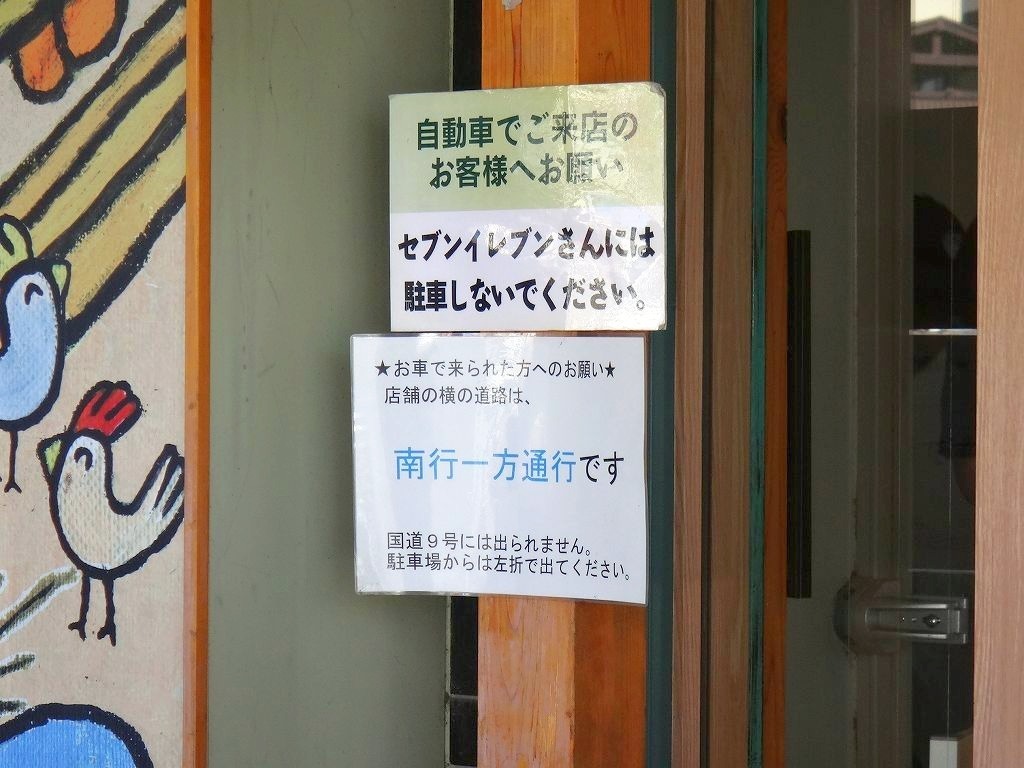 自動車でご来店の
お客様へお願い
セブンイレブンさんには
駐車しないでください。
★お車で来られた方へのお願い★
店舗の横の道路は、
南行一方通行です
国道９号には出られません。
駐車場からは左折で出てください。